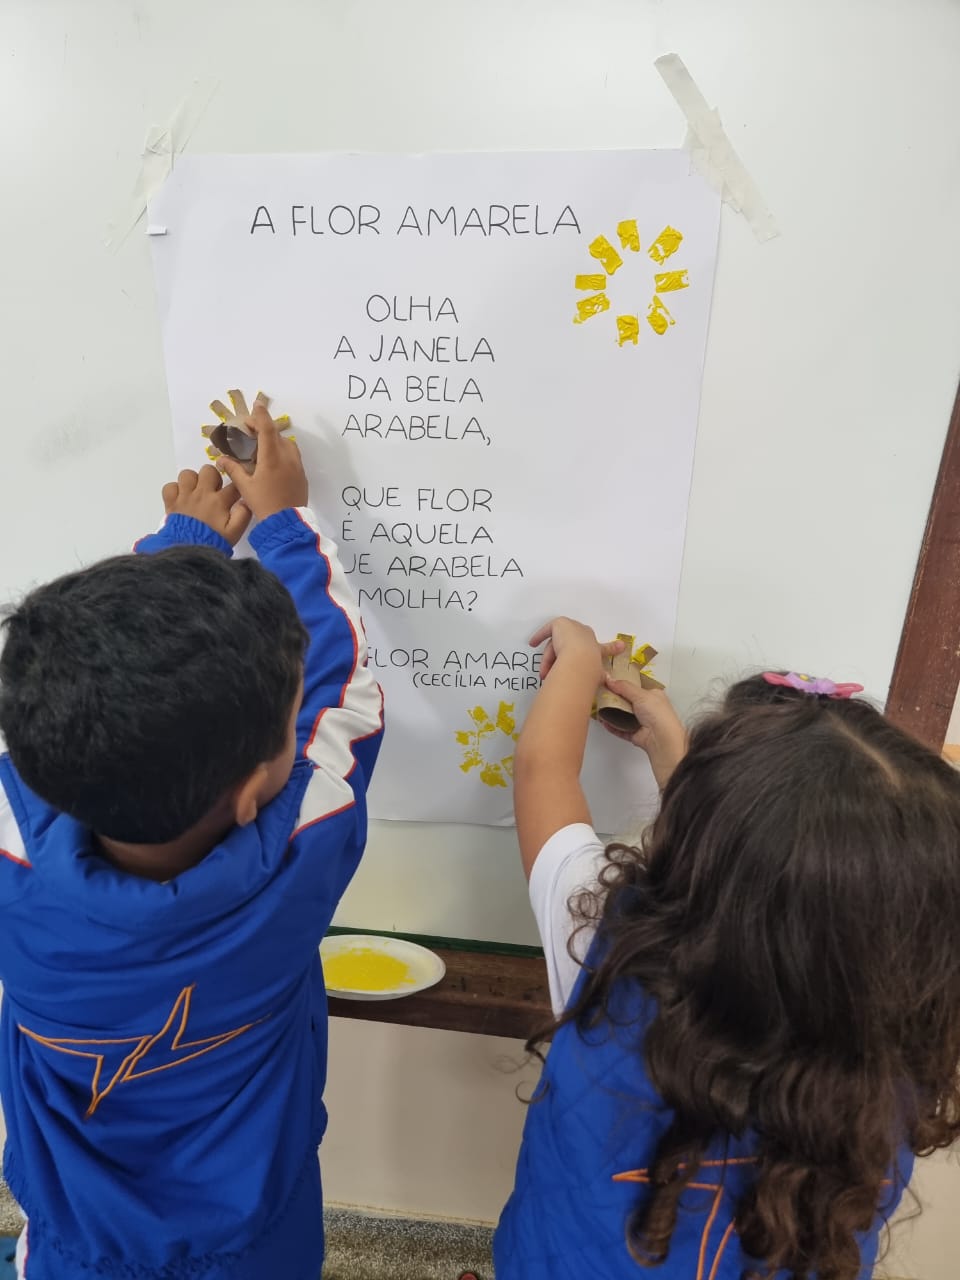 A FLOR AMARELA
OLHA
A JANELA
DA BELA
ARABELA,
QUE FLOR
É AQUELA
ARABELA
MOLHA?
FLOR
(CECÍLIA